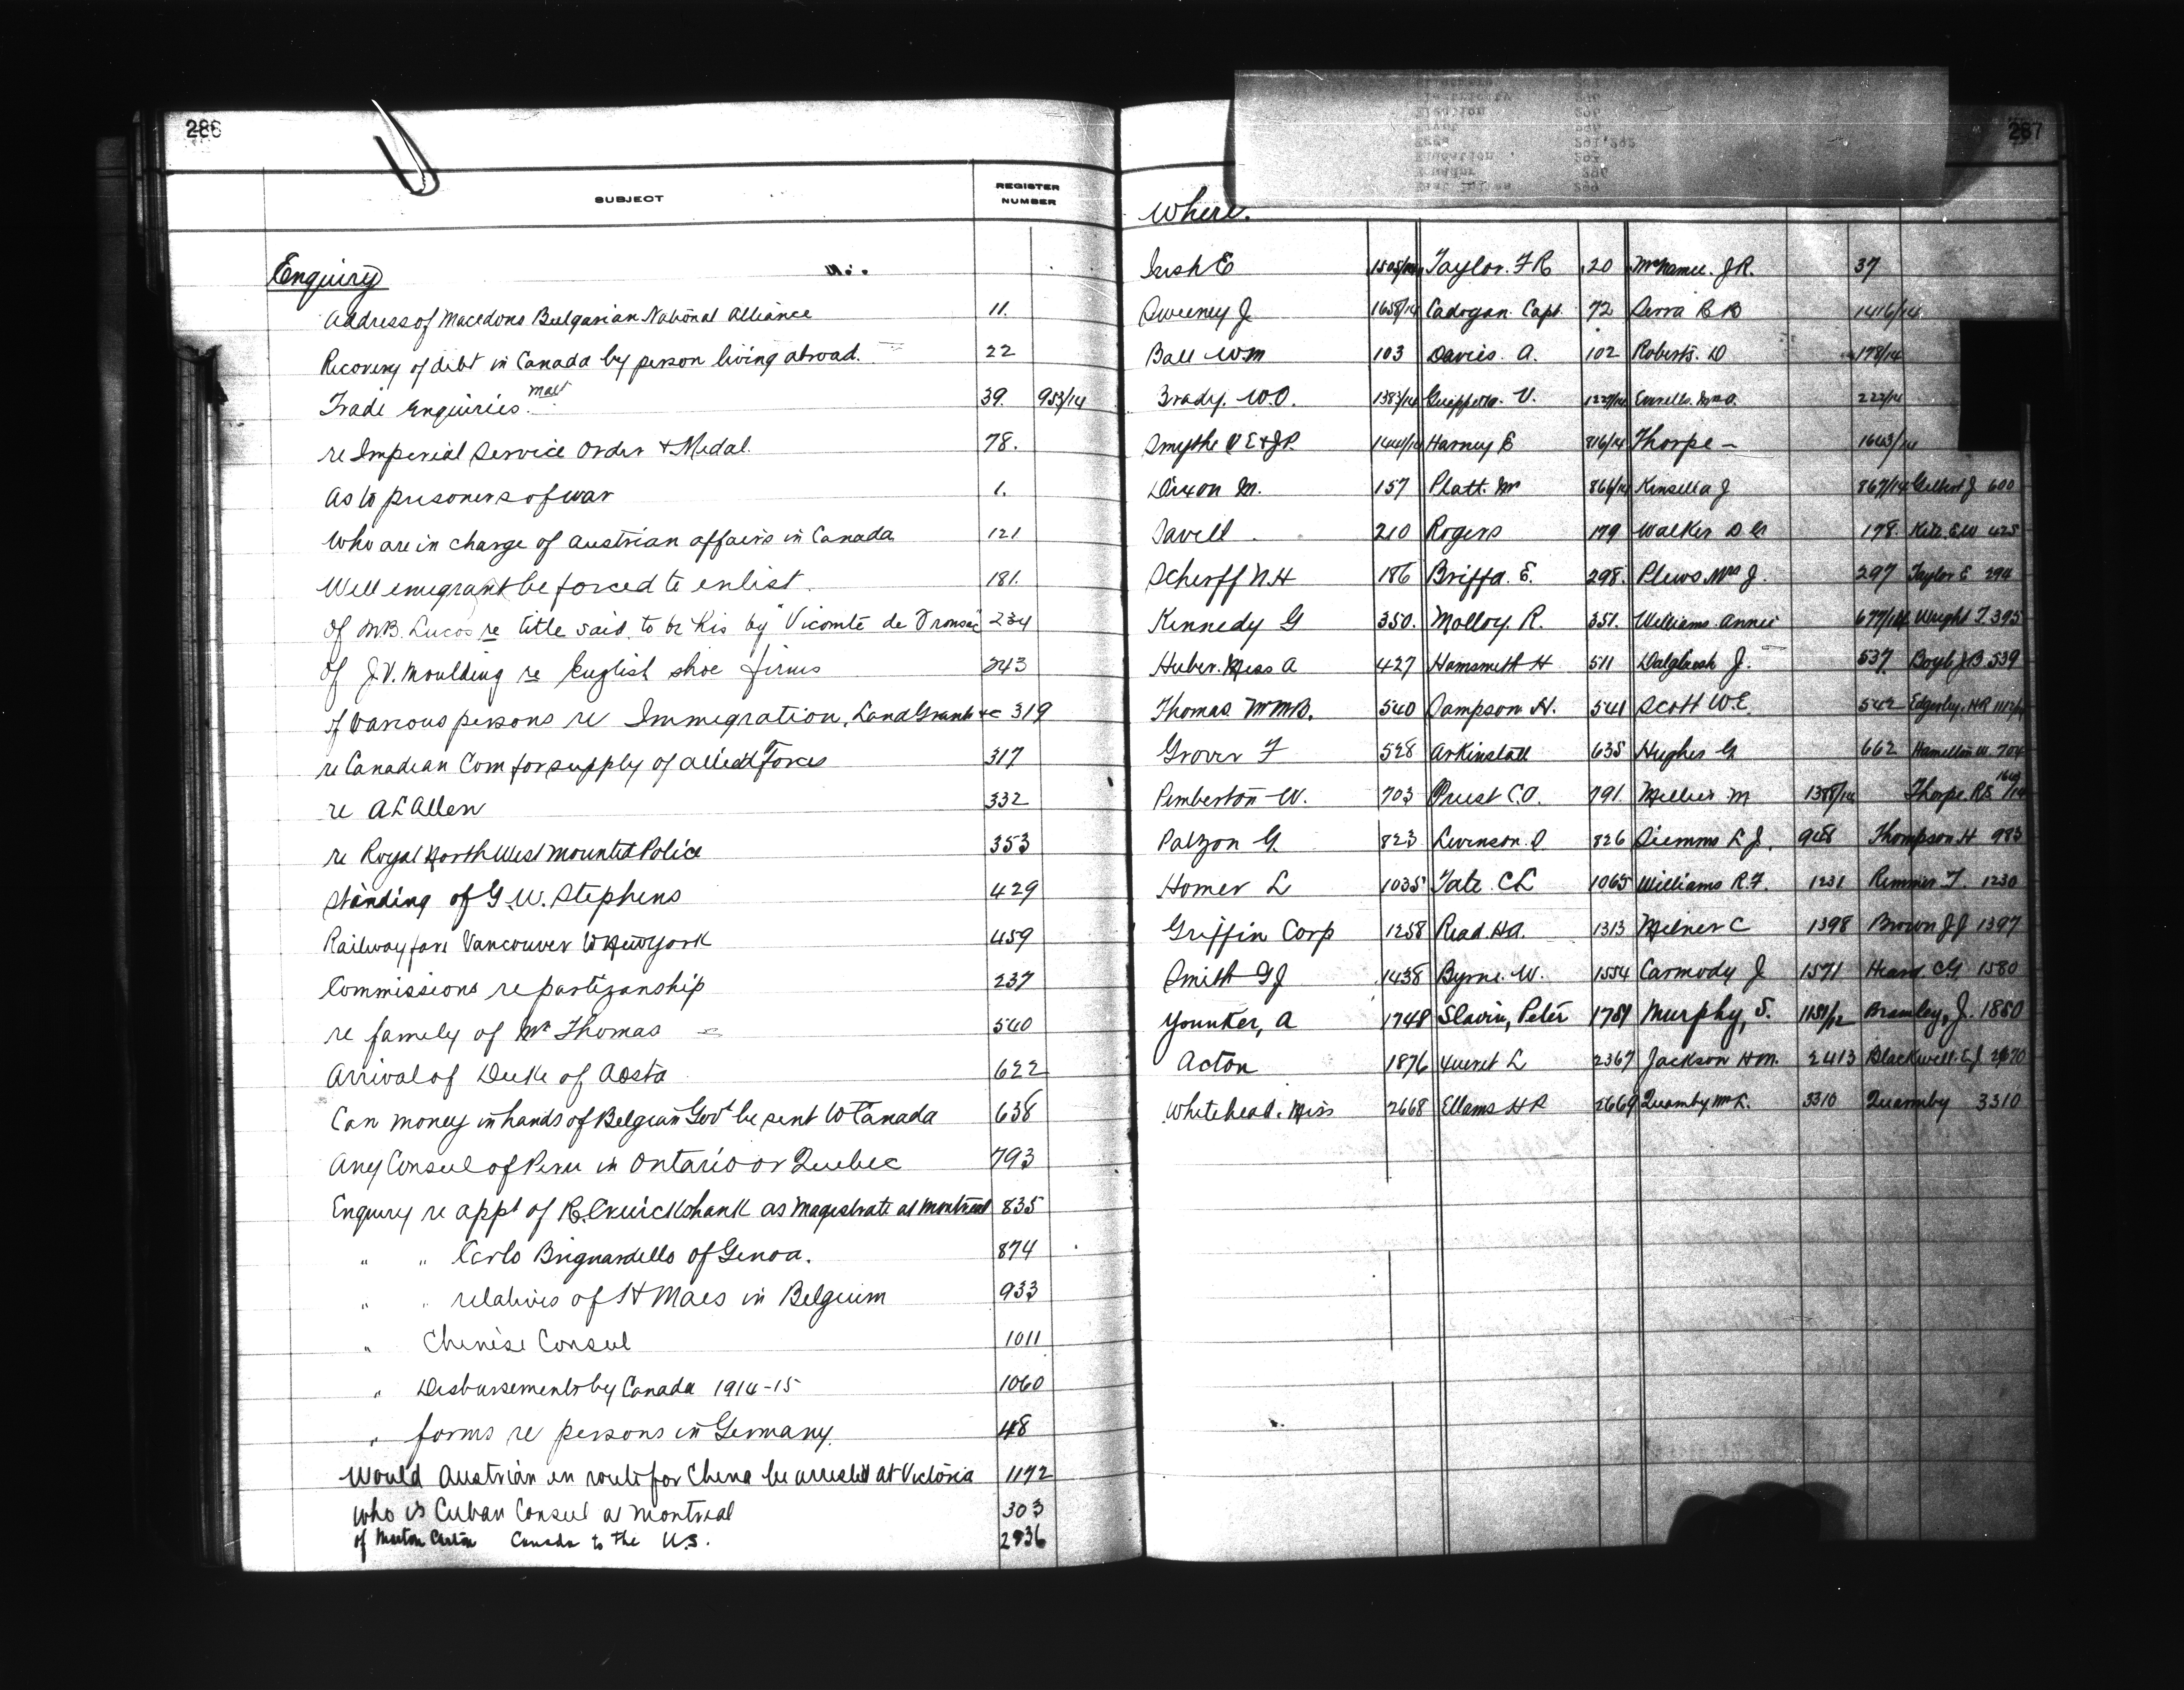 286
SUBJECT REGISTER NUMBER
Enquiry
Address of Macedons Bulgarian National Alliance 11.
Recovery of debt in Canada by person living abroad. 22
Trade Enquiries. 39. 953/14
re Imperial Service Order & Medal. 78.
As to prisoners of war 1.
Who are in charge of Austrian affairs in Canada 121
Will emigrant be forced to enlist. 181.
Of M B. Lucas re title said to be his by "Vicomte de Fronsac 234
Of J. V. Moulding re English shoe firms 243
Of various persons re Immigration, Land Grants &c 319
re Canadian Com for supply of allied Forces 317
re A L Allen 332
re Royal North West Mounted Police 353
Standing of G. W. Stephens 429
Railway fare Vancouver to New York 459
Commissions re partizanship 237
re family of Mr Thomas — 540
Arrival of Duke of Aosta 622
Can money in hands of Belgian Govt be sent to Canada 638
Any Consul of Peru in Ontario or Quebec 793
Enquiry re appt of R. Cruickshank as Magistrate at Montreal 835
" " Carlo Brignardello of Genoa. 874
" " relatives of H Maes in Belgium 933
" Chinese Consul 1011
" Disbursements by Canada 1914-15 1060
" forms re persons in Germany. 48
Would Austrian en route for China be arrested at Victoria 1172
Who is Cuban Consul at Montreal 303
of Canada to the U.S. 2936
287
Where.
Irish E Taylor. F R 20 McNamee. J R. 37
Sweeney J 1658/14 Cadogan. Capt. 72 Serra R B 1416/14
Ball Wm 103 Davies. A. 102 Roberts. D 178/14
Brady. W. O. 1383/14 V. 1227/14 222/14
Smythe V E & J P. 1444/14 Harney E 816/14 Thorpe — 1643/14
Dixon M. 157 Platt. Mr 866/14 Kinsella J 867/14 Gilbert J 600
Savell 210 Rogers 179 Walker D G 178. E W 425
Scherff N H 186 Briffa. E. 298. Plews Mrs J. 297 Taylor E 294
Kennedy G 350. Molloy. R. 351. Williams. Annie 677/14 Wright T. 395
Huber. Miss A 427 Hamsmith H 511 Dalgleish J. 537 J B 539
Thomas. Wm B. 540 Sampson. H. 541 Scott W. E. 542 Edgerley. H R
Grover F 528 Arkinstall 635 Hughes G 662 Hamilton W. 704
Pemberton W. 703 Priest C O. 791. Mellier M 1388/14 Thorpe. R E 1643/14
Patzon G. 823 Levinson. D 826 Siemms L J. 948 Thompson H 983
Homer L 1035 Tate. C L 1065 Williams R. F. 1231 Rimmer T. 1230
Griffin Corp 1258 Read. H A. 1313 Milner C 1398 Brown J J 1397
Smith G J 1438 Byrne. W. 1554 Carmody J 1571 Heard. C G 1580
Younker, A 1748 Slavin, Peter 1751 Murphy, S. 1151/12 Bramley, J. 1850
Acton 1876 L 2367 Jackson H M. 2413 Blackwell. E J 2470
Whitehead. Miss 2668 Ellams H R 2669 Quamby Mr L. 3310 Quamby 3310